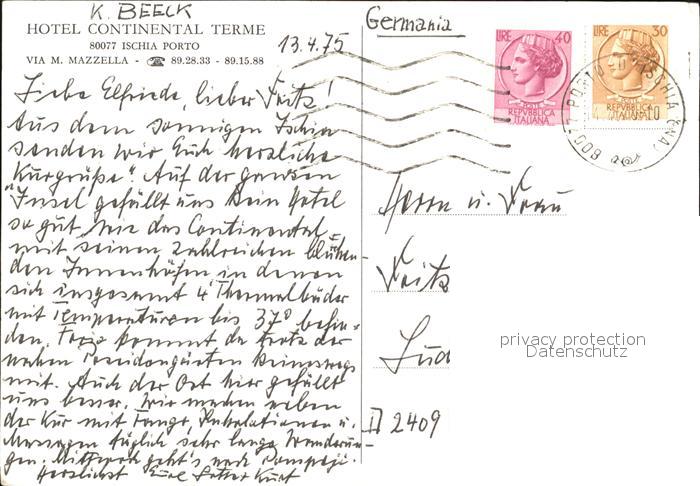 K. BEECK
HOTEL CONTINENTAL TERME
80077 ISCHIA PORTO
VIA M. MAZZELLA - ☎ 89.28.33 - 89.15.88
13.4.75
Liebe Elfriede, lieber Fritz!
Aus dem sonnigen Ischia
senden wir Euch herzliche
"Kurgrüße". Auf der ganzen
Insel gefällt uns kein Hotel
so gut wie das Continental
mit seinen zahlreichen blühen-
den Innenhöfen in denen
sich insgesamt 4 Thermalbäder
mit Temperaturen bis 37° befin-
den. kommt da trotz der
nahen Poseidongärten keineswegs
mit. Auch der Ort hier gefällt
uns besser. Wir machen neben
der Kur mit Fango, Inhalationen u.
Massagen täglich sehr lange Wanderun-
gen. Mittwoch geht's nach Pompeji.
Herzlichst Eure Kurt
Germania
LIRE 40
REPVBBLICA
ITALIANA
LIRE 30
REPVBBLICA
ITALIANA
80077 PORTO D'ISCHIA (NA)
Herrn u. Frau
Fritz
Lud
D 2409
privacy protection
Datenschutz